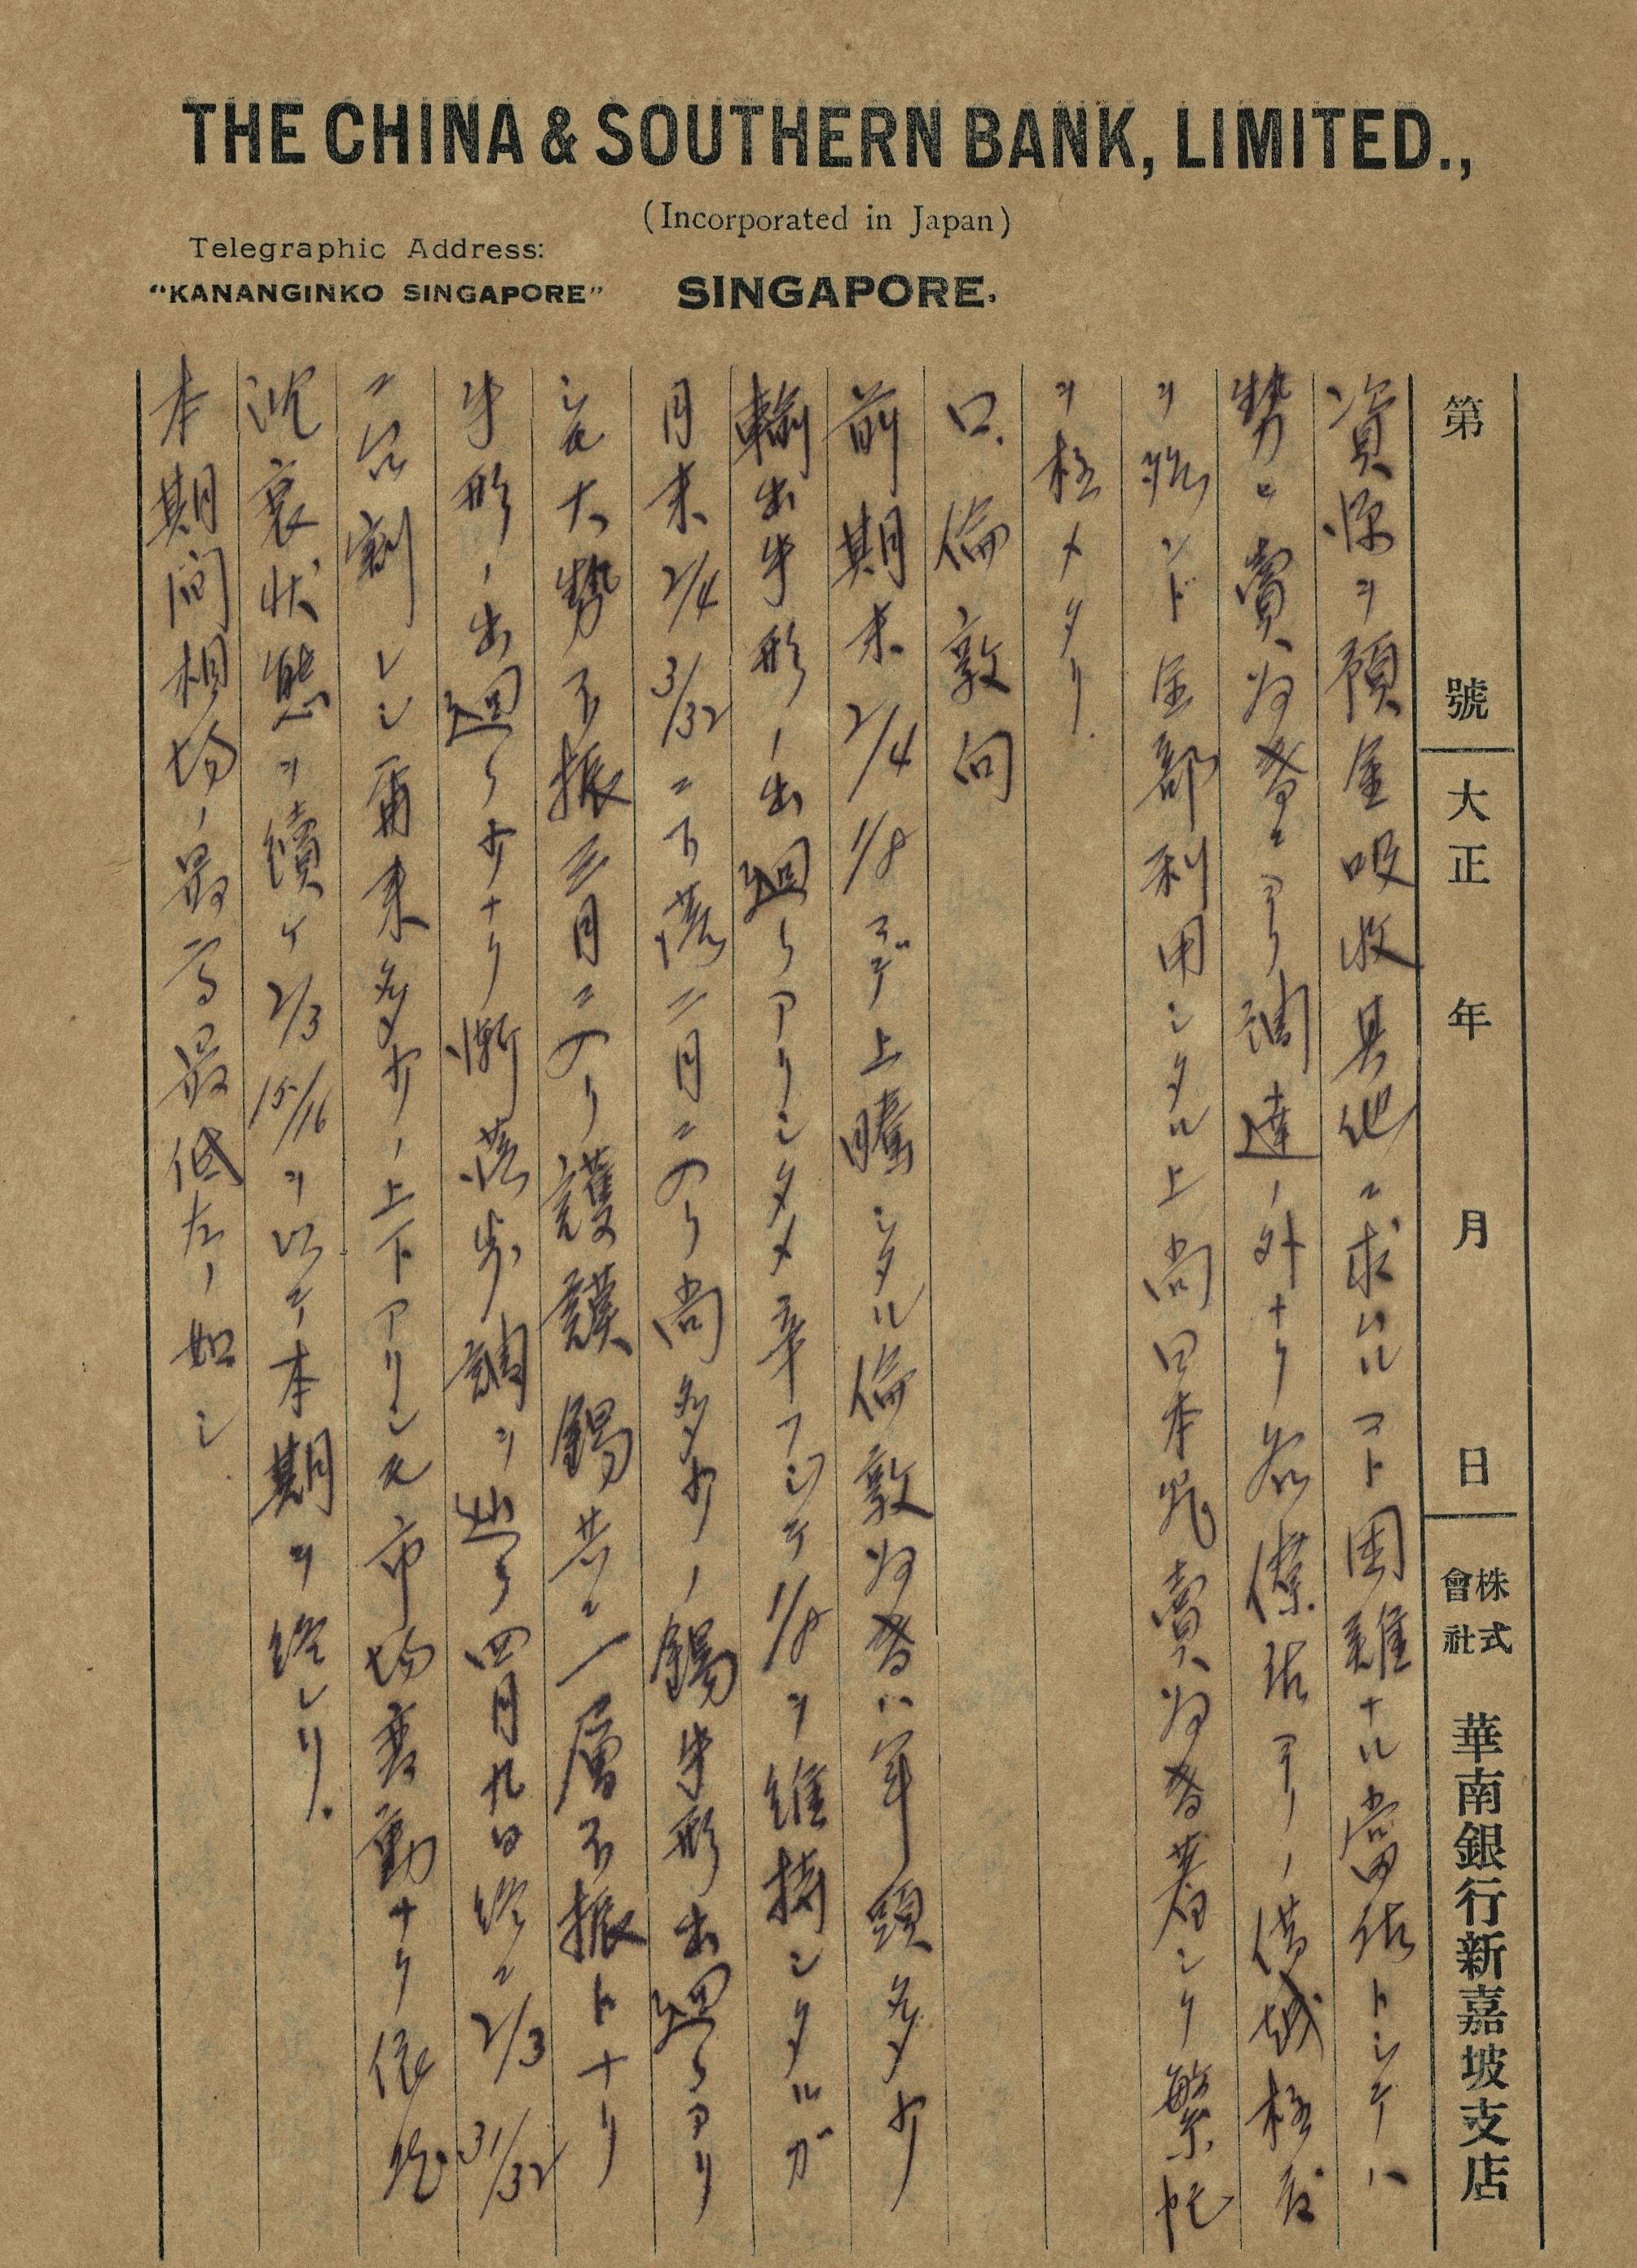 THE CHINA & SOUTHERN BANK, LIMITED.,
(Incorporated in Japan)
Telegraphic Address:
"KANANGINKO SINGAPORE"
SINGAPORE.
第 號 大正 年 月 日 株式會社 華南銀行新嘉坡支店
資源ヲ預金吸收其他ニ求ムルコト困難ナル當店トシテハ
勢ヒ賣為替ニヨリ調達ノ外ナク各僚店ヨリノ借越極度
ヲ殆ンド全部利用シタル上尚日本宛賣為替著シク繁忙
ヲ極メタリ.
口. 倫敦向
前期末 2/4 1/8 マデ上騰シタル倫敦為替ハ年頭多少
輸出手形ノ出廻リアリシタメ辛フジテ 1/8 ヲ維持シタルガ
月末 2/4 3/32 ニ下落二月ニ入リ尚多少ノ錫手形出廻リアリ
シモ大勢不振三月ニ入リ護謨錫共ニ一層不振トナリ
手形ノ出廻リ少ナク漸落步調ヲ辿リ四月九日終ニ 2/3 31/32
ニ台割レシ爾来多少ノ上下アリシモ市場変動ナク依然
沈衰状態ヲ續ケ 2/3 15/16 ヲ以テ本期ヲ終レリ.
本期間相場ノ最高最低左ノ如シ.